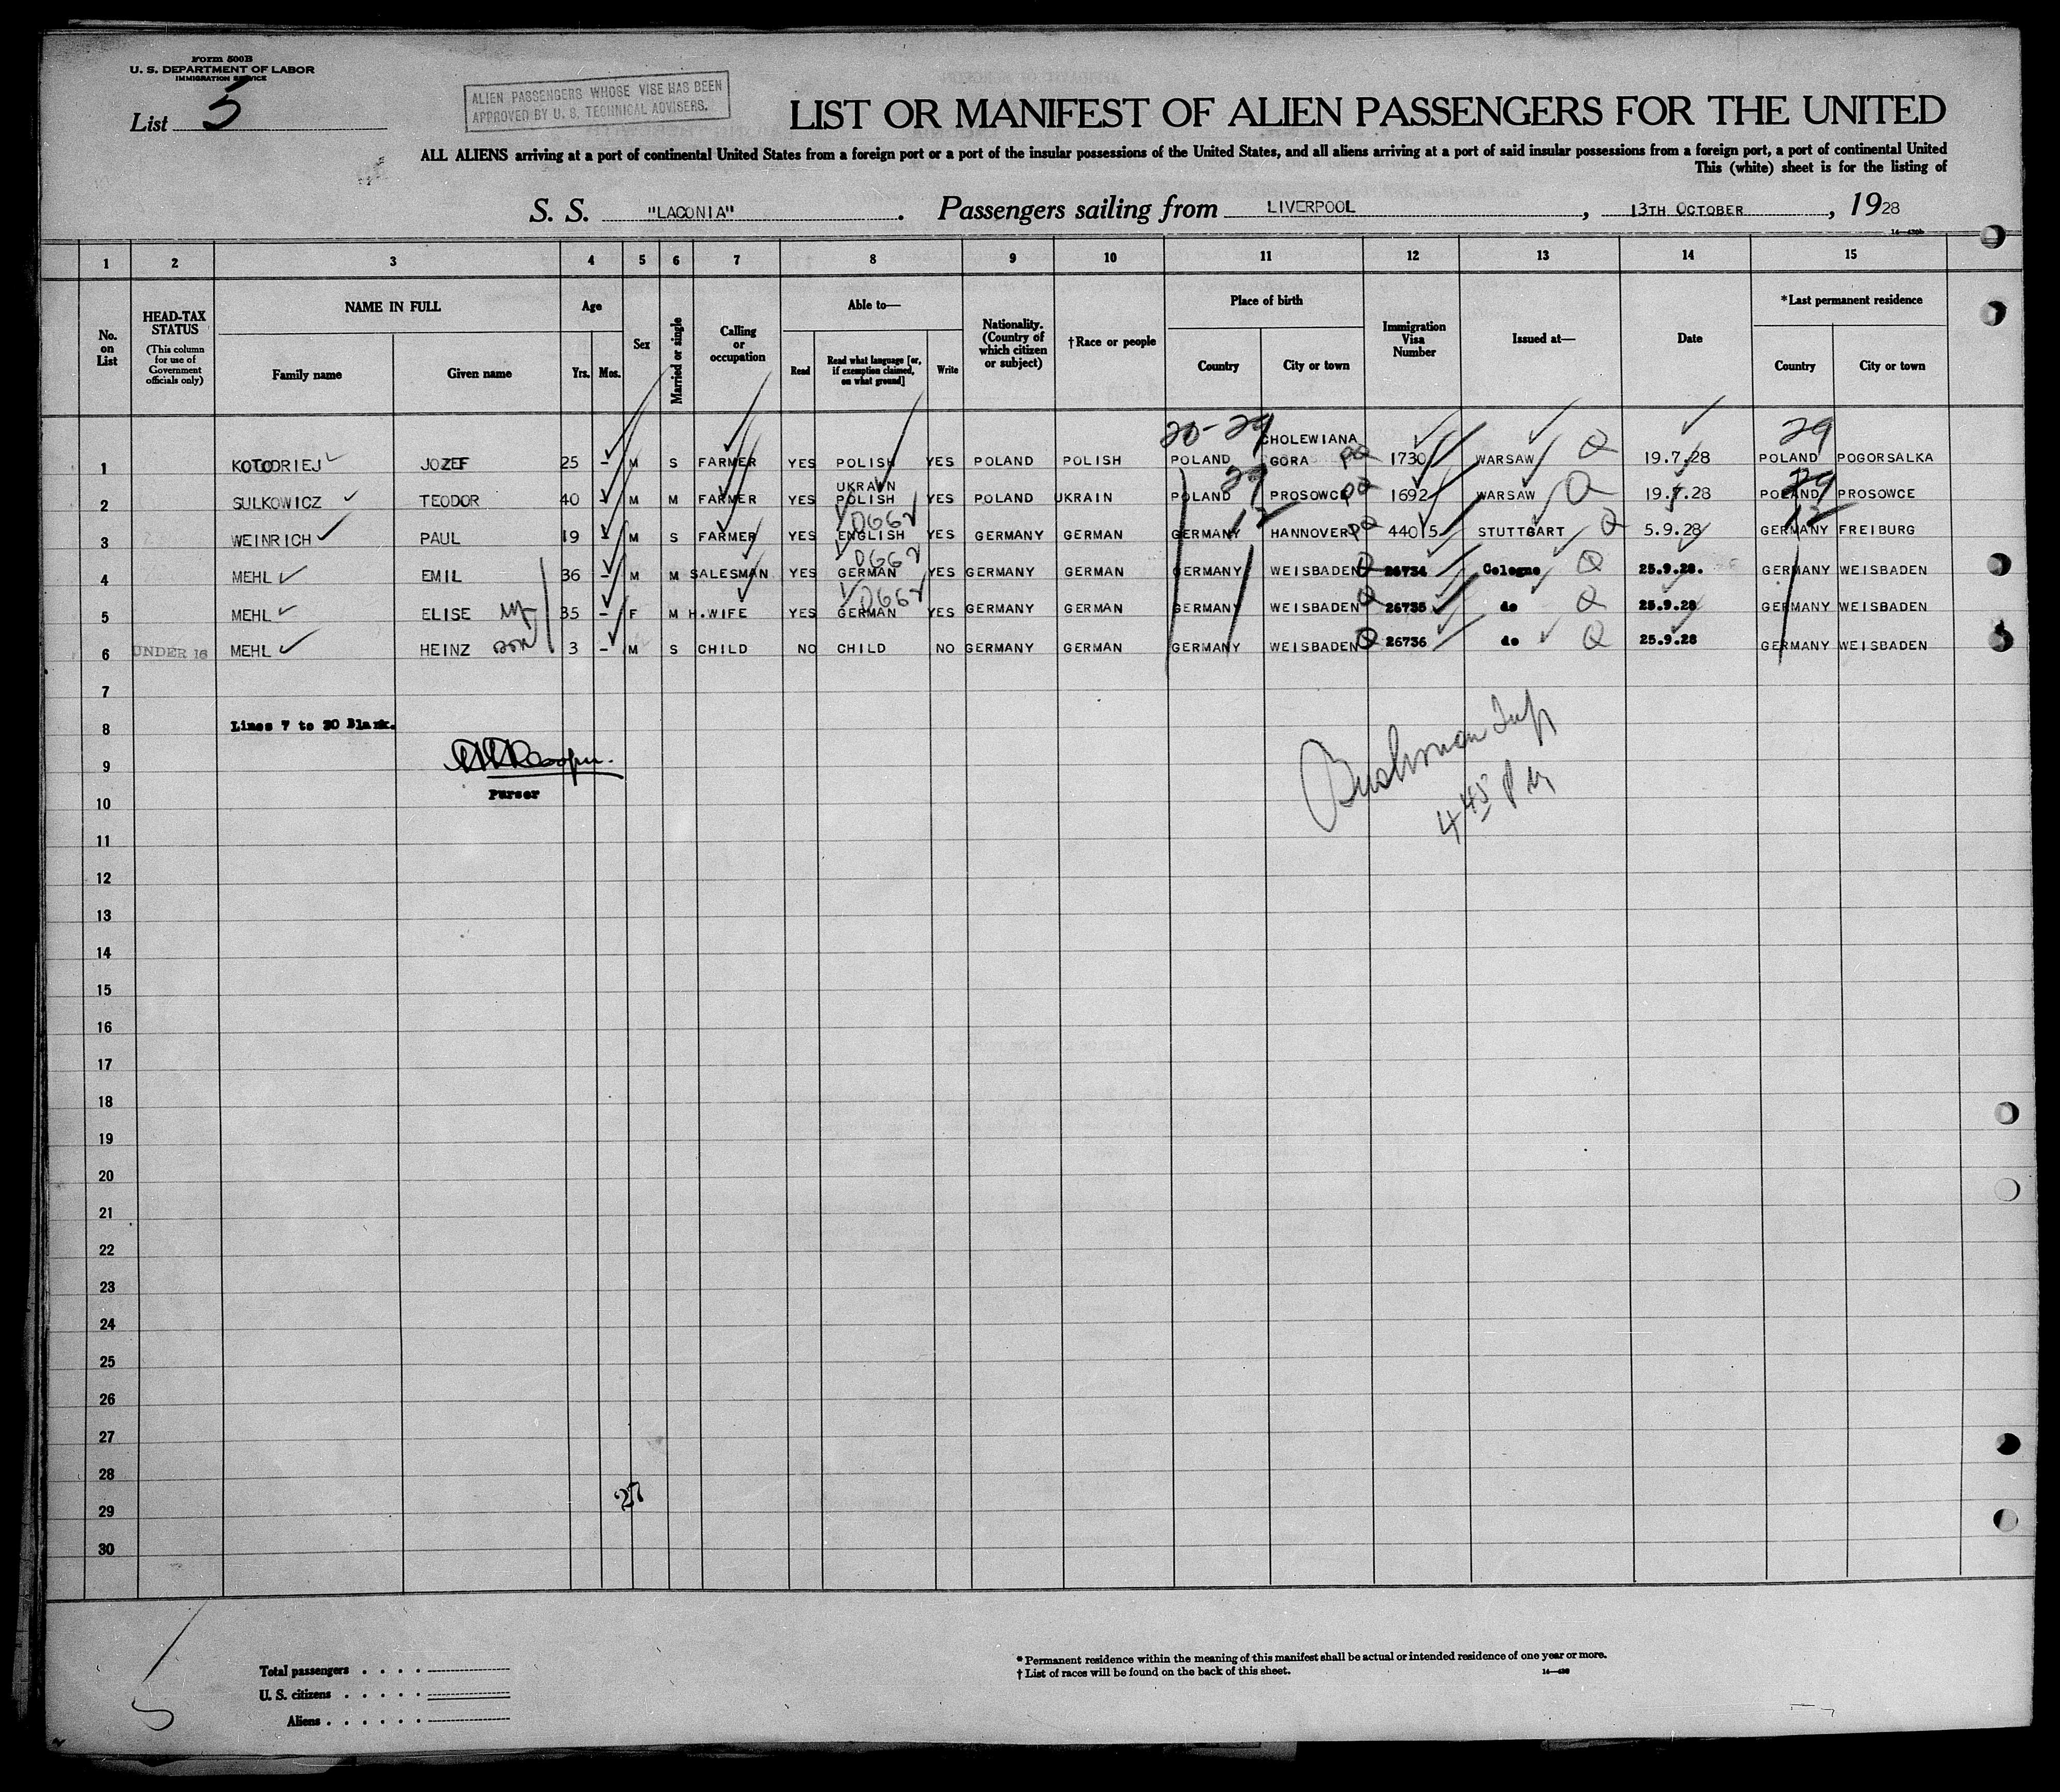 Form 500B
U. S. DEPARTMENT OF LABOR
IMMIGRATION SERVICE
List 5
ALIEN PASSENGERS WHOSE VISE HAS BEEN
APPROVED BY U. S. TECHNICAL ADVISERS.
LIST OR MANIFEST OF ALIEN PASSENGERS FOR THE UNITED
ALL ALIENS arriving at a port of continental United States from a foreign port or a port of the insular possessions of the United States, and all aliens arriving at a port of said insular possessions from a foreign port, a port of continental United
This (white) sheet is for the listing of
S. S. "LACONIA". Passengers sailing from LIVERPOOL, 13TH OCTOBER, 1928
1 2 3 4 5 6 7 8 9 10 11 12 13 14 15
No. on List
HEAD-TAX STATUS
(This column for use of Government officials only)
NAME IN FULL
Family name Given name
Age
Yrs. Mos.
Sex
Married or single
Calling or occupation
Able to—
Read Read what language [or, if exemption claimed, on what ground] Write
Nationality. (Country of which citizen or subject)
†Race or people
Place of birth
Country City or town
Immigration Visa Number
Issued at—
Date
*Last permanent residence
Country City or town
20-29 29
CHOLEWIANA
1 JOZEF 25 - M S FARMER YES POLISH YES POLAND POLISH POLAND GORA PQ 1730 WARSAW Q 19.7.28 POLAND POGORSALKA
UKRAIN 29 29
2 SULKOWICZ TEODOR 40 - M M FARMER YES POLISH YES POLAND UKRAIN POLAND PROSOWCE PQ 1692 WARSAW Q 19.7.28 POLAND PROSOWCE
12 12
3 WEINRICH PAUL 19 - M S FARMER YES ENGLISH YES GERMANY GERMAN GERMANY HANNOVER PQ 44015 STUTTGART Q 5.9.28 GERMANY FREIBURG
4 MEHL EMIL 36 - M M SALESMAN YES GERMAN YES GERMANY GERMAN GERMANY WEISBADEN Q 26734 Cologne Q 25.9.28. GERMANY WEISBADEN
5 MEHL ELISE wf 35 - F M H.WIFE YES GERMAN YES GERMANY GERMAN GERMANY WEISBADEN Q 26735 do Q 25.9.28 GERMANY WEISBADEN
6 UNDER 16 MEHL HEINZ son 3 - M S CHILD NO CHILD NO GERMANY GERMAN GERMANY WEISBADEN Q 26736 do Q 25.9.28 GERMANY WEISBADEN
7
8 Lines 7 to 30 Blank.
9
Purser
10
Bushman Insp
4 45 P M
11
12
13
14
15
16
17
18
19
20
21
22
23
24
25
26
27
28
27
29
30
5
Total passengers
U. S. citizens
Aliens
* Permanent residence within the meaning of this manifest shall be actual or intended residence of one year or more.
† List of races will be found on the back of this sheet.